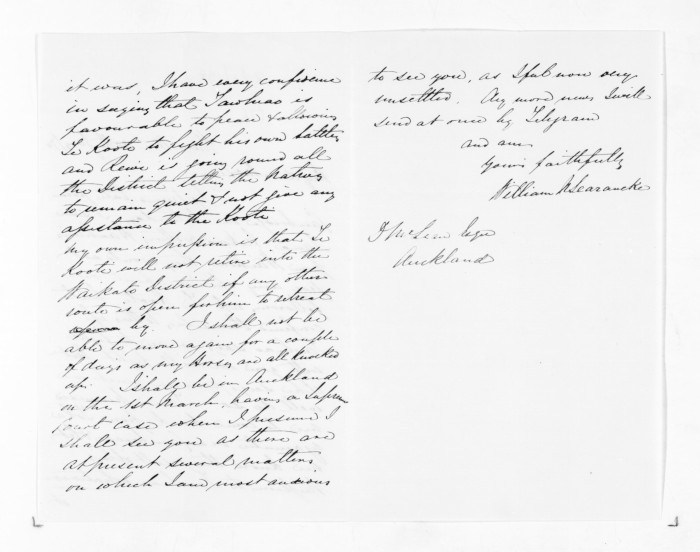 it was, I have every confidence
in saying that Tawhiao is
favourable to peace & allowing
Te Kooti to fight his own battles
and Rewi is going round all
the District telling the Natives
to remain quiet & not give any
assistance to Te Kooti
my own impression is that Te
Kooti will not retire into the
Waikato District if any other
route is open for him to retreat
by. I shall not be
able to move again for a couple
of days as my Horses are all knocked
up. I shall be in Auckland
on the 1st March, having a Supreme
Court case when I presume I
shall see you as there are
at present several matters
on which I am most anxious
to see you, as I feel now very
unsettled. Any more news I will
send at once by Telegram
and am
Yours faithfully
William N Searancke
D McLean Esqre
Auckland